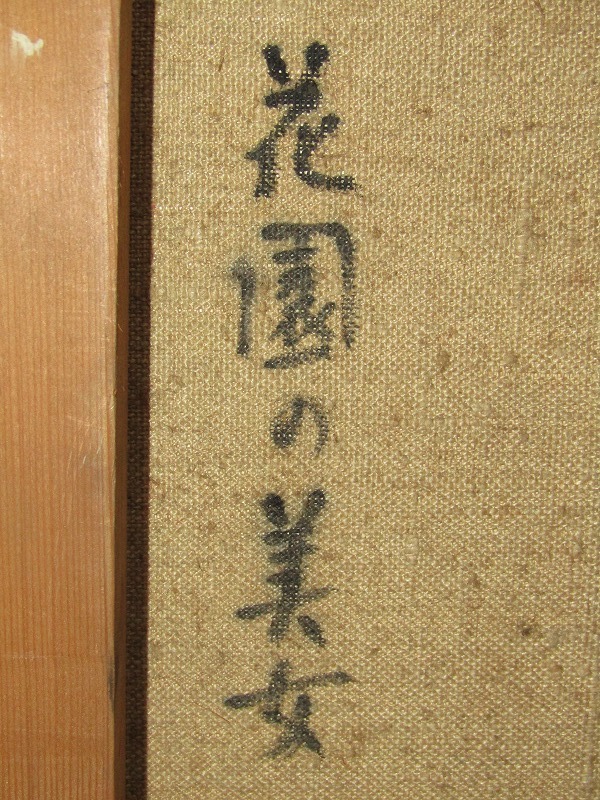 花園の美女